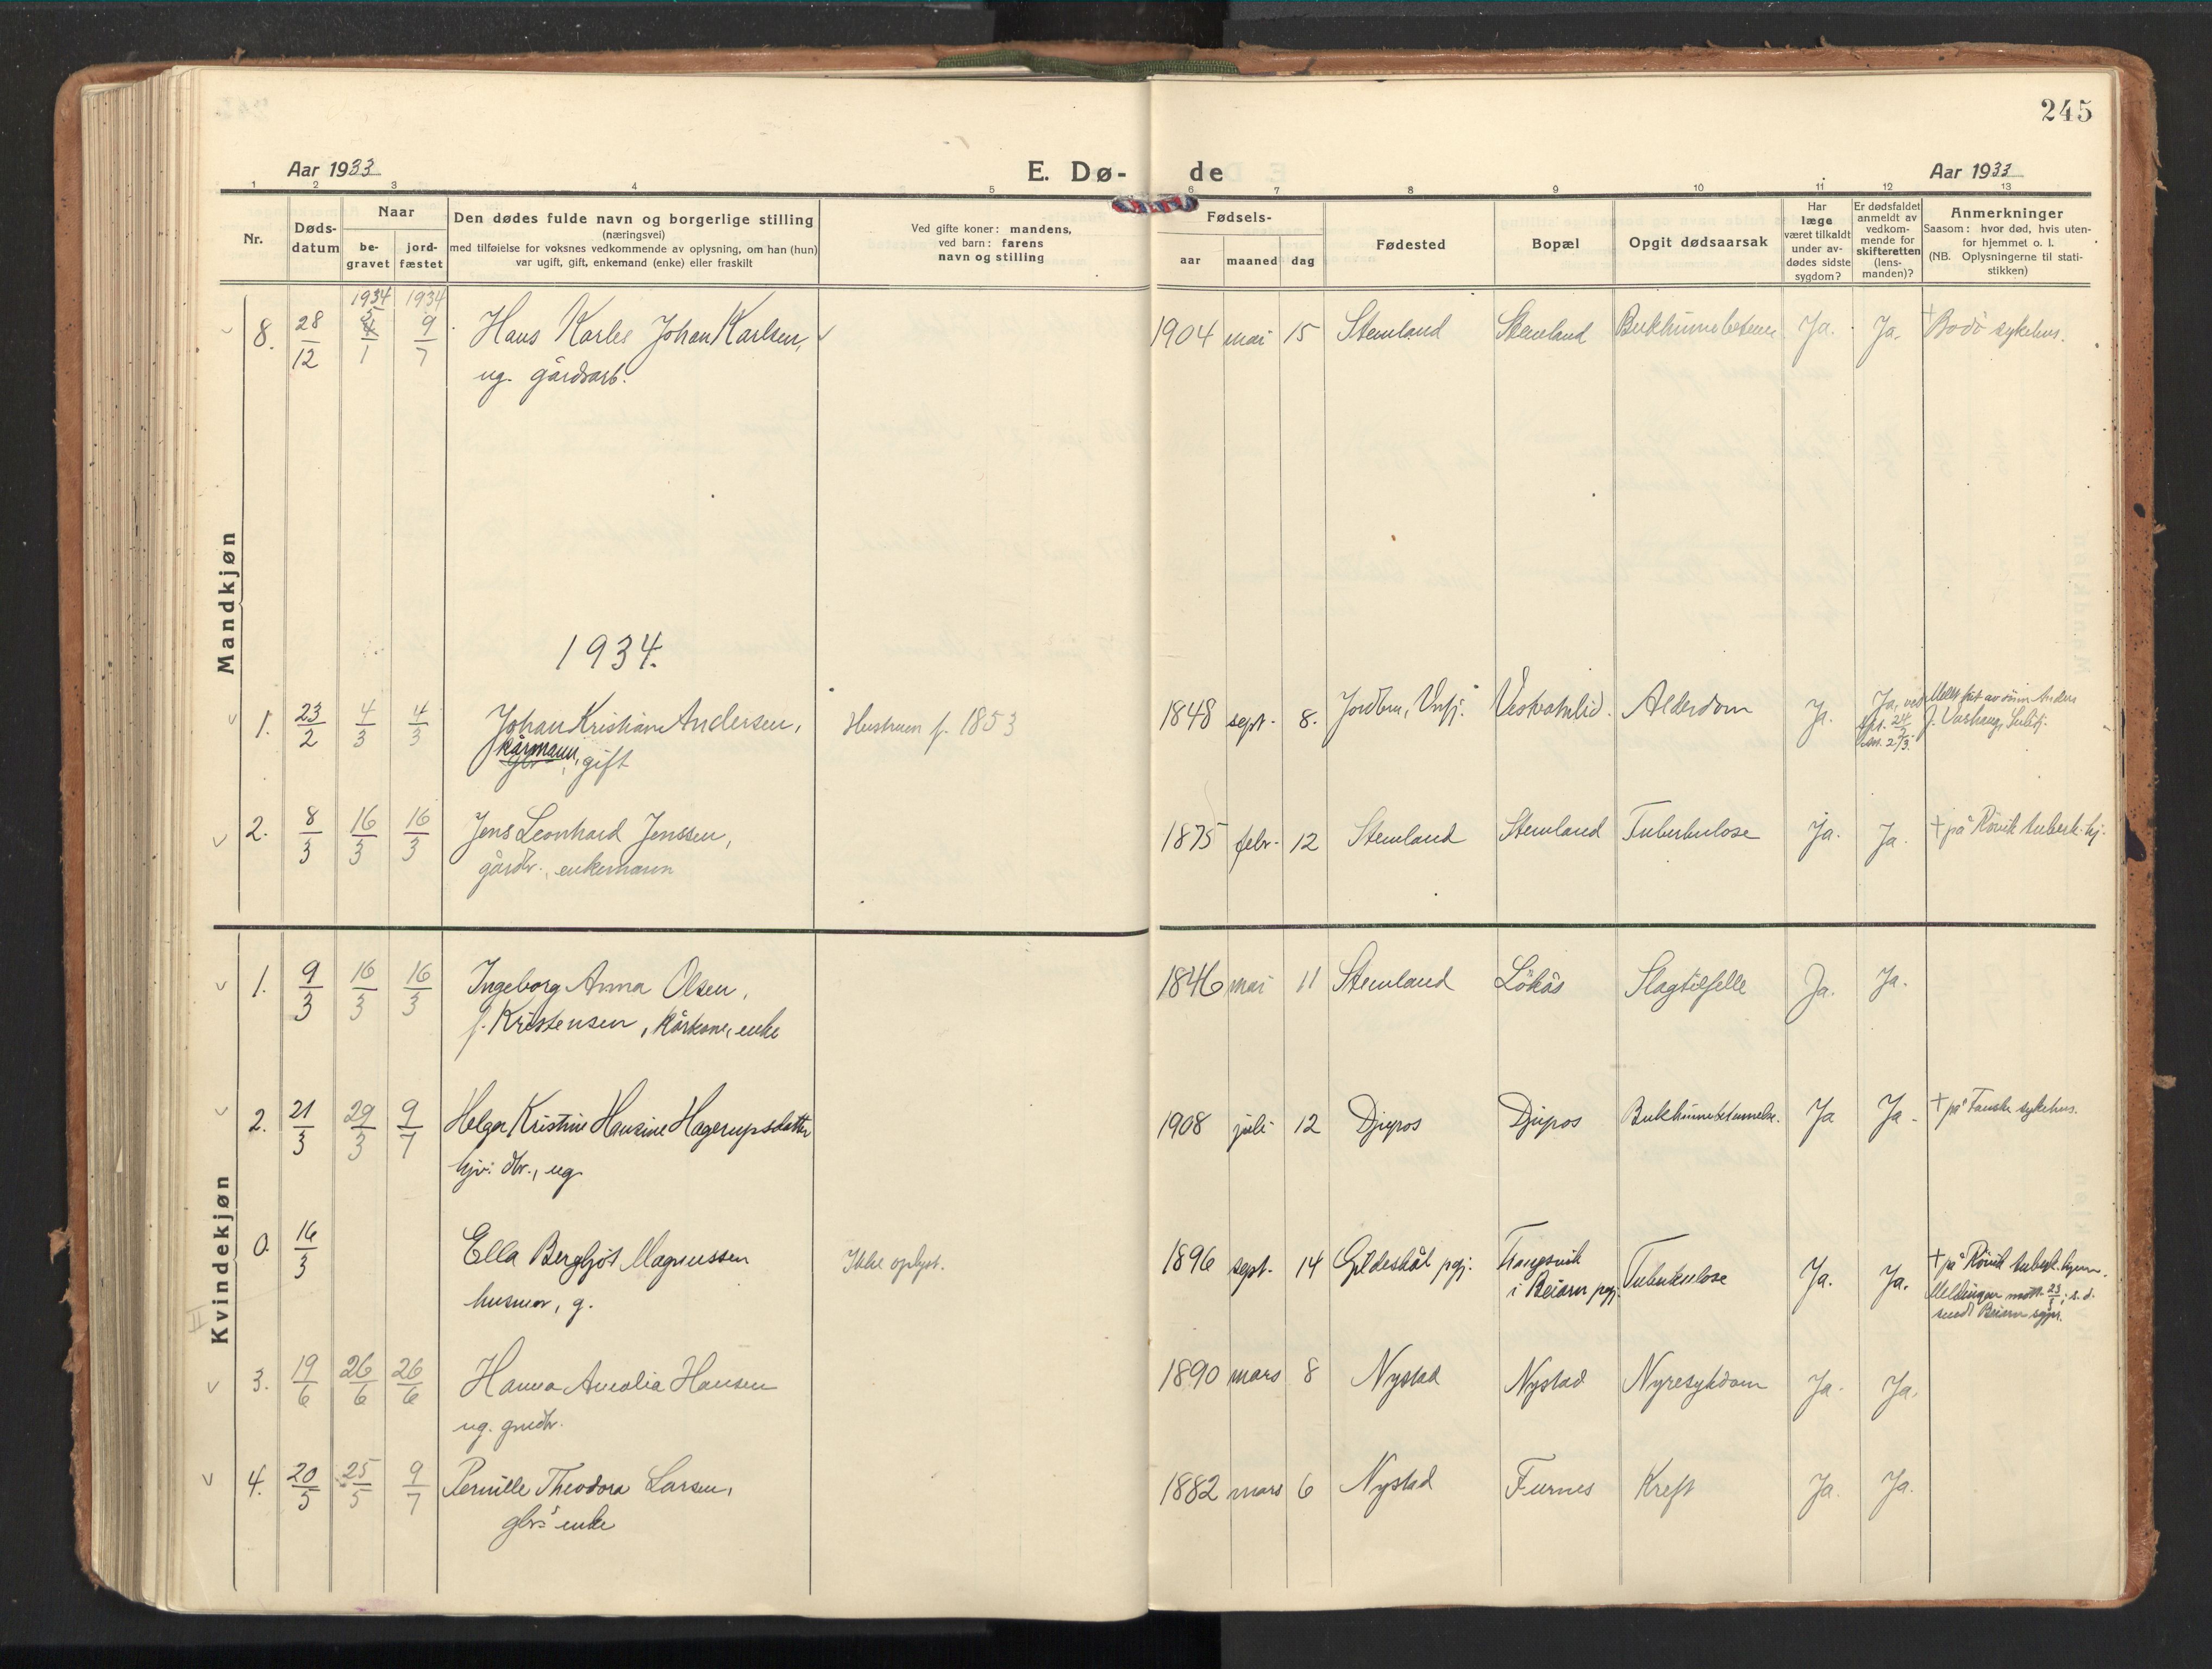 245
Aar 1933
E. Dø-
de
Aar 1933
1 2 3 4 5 6 7 8 9 10 11 12 13
Nr.
Døds-
datum
Naar
be-
gravet
jord-
fæstet
Den dødes fulde navn og borgerlige stilling
(næringsvei)
med tilføielse for voksnes vedkommende av oplysning, om han (hun)
var ugift, gift, enkemand (enke) eller fraskilt
Ved gifte koner: mandens,
ved barn: farens
navn og stilling
Fødsels-
aar maaned dag
Fødested
Bopæl
Opgit dødsaarsak
Har
læge
været tilkaldt
under av-
dødes sidste
sygdom?
Er dødsfaldet
anmeldt av
vedkom-
mende for
skifteretten
(lens-
manden)?
Anmerkninger
Saasom: hvor død, hvis uten-
for hjemmet o. l.
(NB. Oplysningerne til stati-
stikken)
Mandkjøn
1934 1934
8. 28/12 5/1 9/7 Hans Karles Johan Karlsen, 1904 mai 15 Stemland Stemland Ja. Ja. † Bodö sykehus.
ug. gårdsarb.
1934.
1. 23/2 4/3 4/3 Johan Kristian Andersen, Hustruen f. 1853 1848 sept. 8. Alderdom Ja. Ja, ved
kårmann, gift
2. 8/3 16/3 16/3 Jens Leonhard Jenssen, 1875 febr. 12 Stemland Stemland Tuberkulose Ja. Ja. † på Rövik tuberk. hj.
gårdbr., enkemann
Kvindekjøn
1. 9/3 16/3 16/3 Ingeborg Anna Olsen, 1846 mai 11 Stemland Lökås Slagtilfelle Ja. Ja.
f. Kristensen, kårkone, enke
2. 21/3 29/3 9/7 Helga Kristine Hansine Hagerupsdatter 1908 juli 12 Djupos Djupos Bukhinnebetennelse. Ja Ja. † på Fauske sykehus.
ug.
0. 16/3 Ella Bergljot Magnussen Ikke oplyst. 1896 sept. 14 Gildeskål pgj. i Beiarn pgj. Tuberkulose Ja. Ja. † på Rövik tuberk. hjem.
husmor, g. Meldingen mott. s. d.
sendt Beiarn
3. 19/6 26/6 26/6 Hanna Amalia Hansen 1890 mars 8 Nystad Nystad Nyresykdom Ja. Ja.
ug.
4. 20/5 25/5 9/7 Pernille Theodora Larsen, 1882 mars 6 Nystad Furnes Kreft Ja. Ja.
gbrs enke